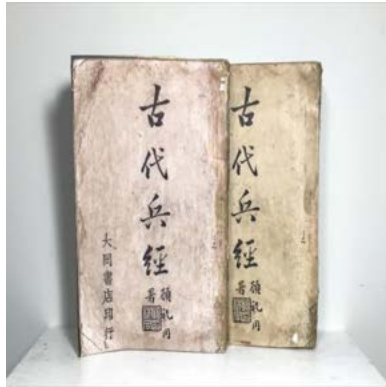 古代兵經
大同書店印行
古代兵經